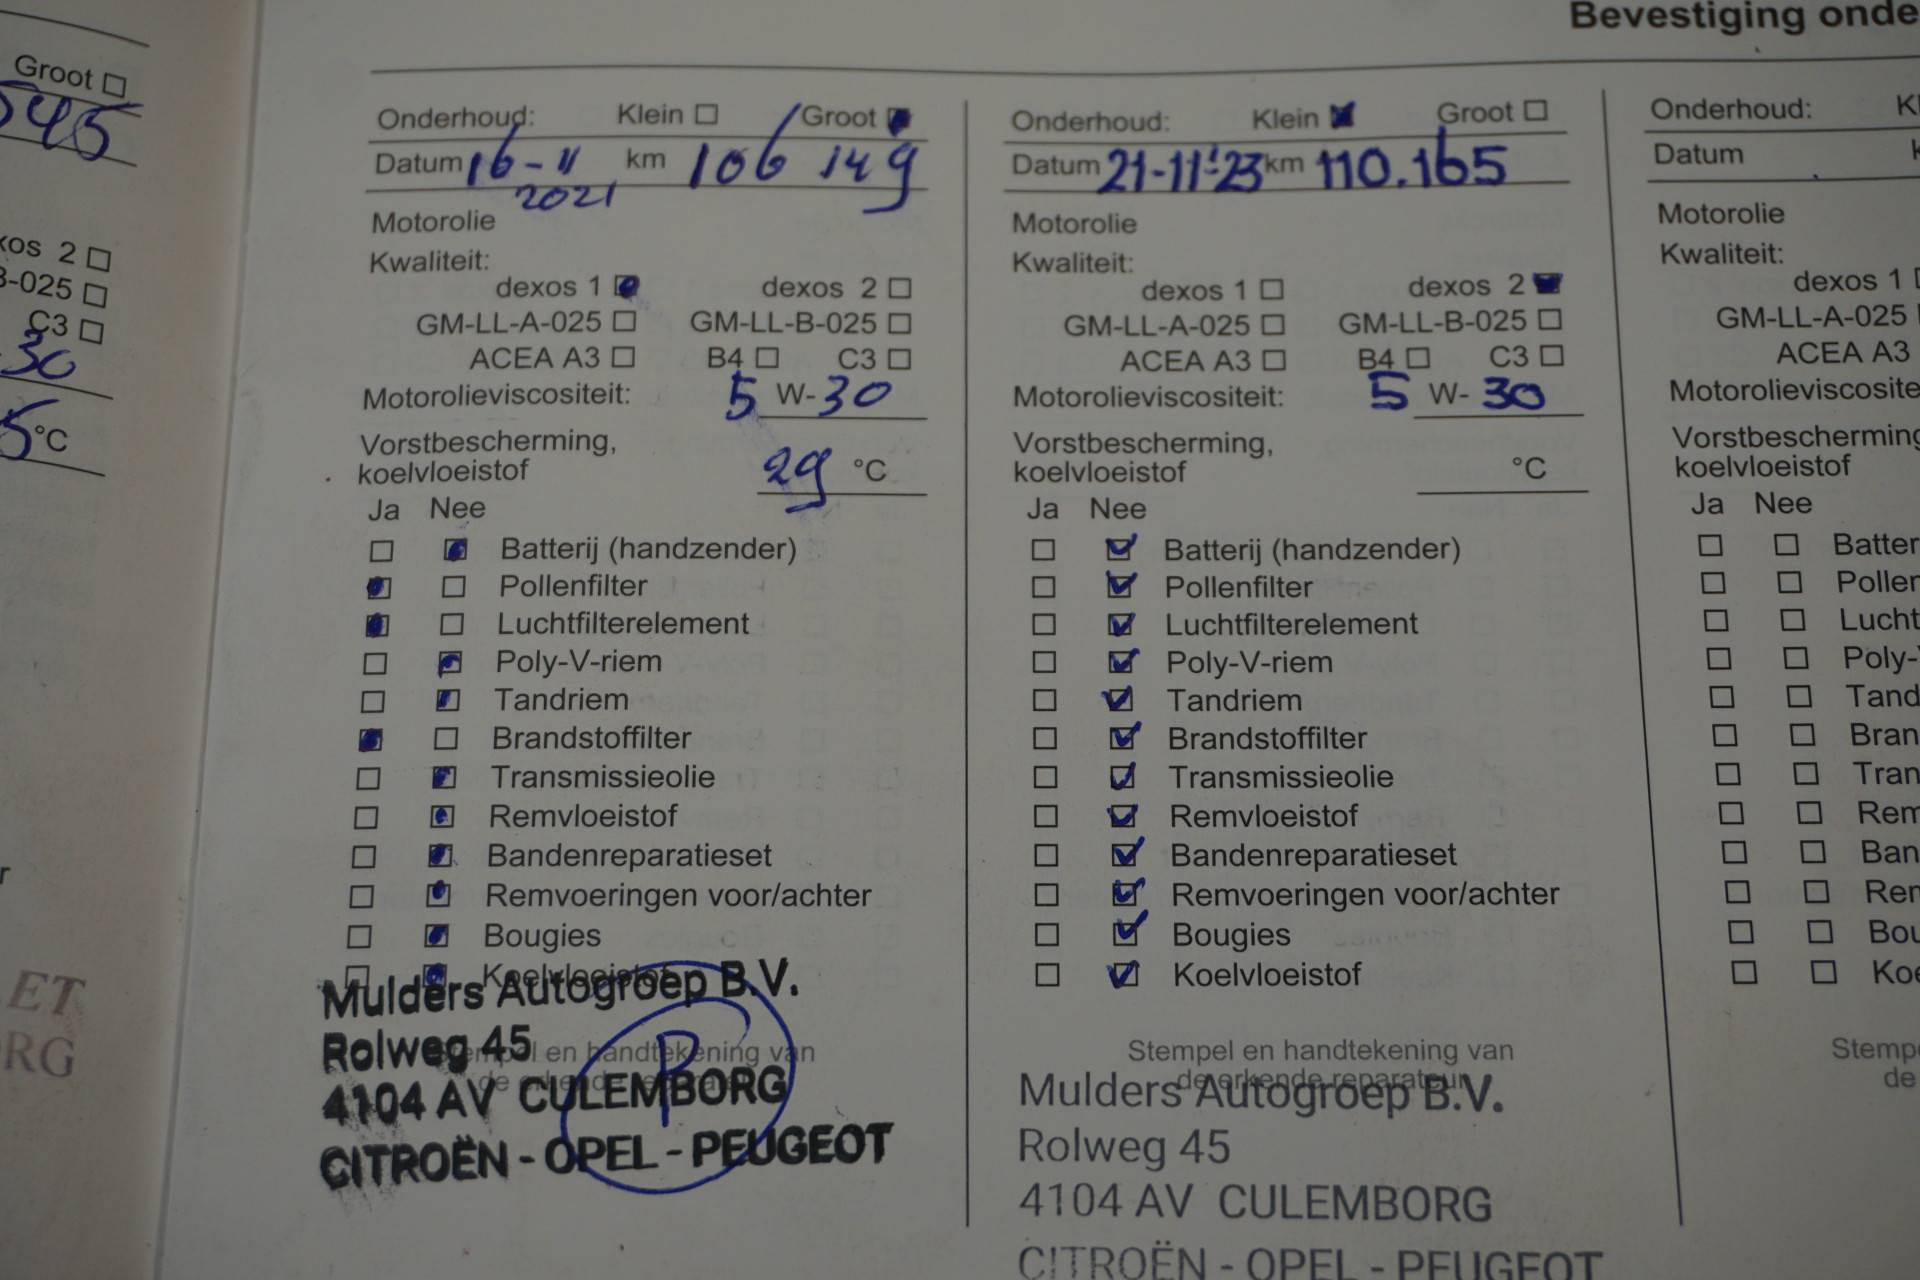 Bevestiging onde
Groot
545
xos 2
B-025
C3
30
5 °C
r
ET
RG
Onderhoud: Klein Groot
Datum 16-11 2021 km 106 149
Motorolie
Kwaliteit:
dexos 1 dexos 2
GM-LL-A-025 GM-LL-B-025
ACEA A3 B4 C3
Motorolieviscositeit: 5 W- 30
Vorstbescherming,
koelvloeistof 29 °C
Ja Nee
Batterij (handzender)
Pollenfilter
Luchtfilterelement
Poly-V-riem
Tandriem
Brandstoffilter
Transmissieolie
Remvloeistof
Bandenreparatieset
Remvoeringen voor/achter
Bougies
Koelvloeistof
Mulders Autogroep B.V.
Rolweg 45
Stempel en handtekening van
de erkende reparateur
4104 AV CULEMBORG
CITROËN - OPEL - PEUGEOT
Onderhoud: Klein Groot
Datum 21-11-'23 km 110.165
Motorolie
Kwaliteit:
dexos 1 dexos 2
GM-LL-A-025 GM-LL-B-025
ACEA A3 B4 C3
Motorolieviscositeit: 5 W- 30
Vorstbescherming,
koelvloeistof °C
Ja Nee
Batterij (handzender)
Pollenfilter
Luchtfilterelement
Poly-V-riem
Tandriem
Brandstoffilter
Transmissieolie
Remvloeistof
Bandenreparatieset
Remvoeringen voor/achter
Bougies
Koelvloeistof
Stempel en handtekening van
de erkende reparateur
Mulders Autogroep B.V.
Rolweg 45
4104 AV CULEMBORG
CITROËN - OPEL - PEUGEOT
Onderhoud: K
Datum k
Motorolie
Kwaliteit:
dexos 1
GM-LL-A-025
ACEA A3
Motorolieviscosite
Vorstbescherming
koelvloeistof
Ja Nee
Batter
Pollen
Lucht
Poly-
Tand
Bran
Tran
Rem
Ban
Rem
Bou
Koe
Stemp
de